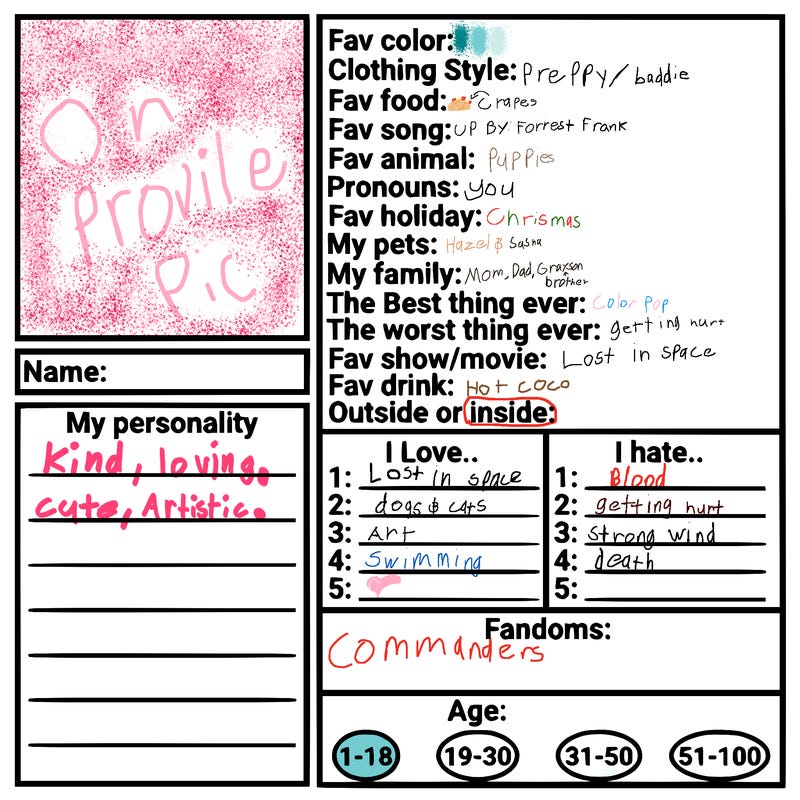 On
Provile
Pic
Name:
My personality
Kind, loving.
cute, Artistic.
Fav color:
Clothing Style: Preppy/baddie
Fav food: Crapes
Fav song: UP BY: Forrest Frank
Fav animal: Puppies
Pronouns: you
Fav holiday: Chrismas
My pets: Hazel & Sasha
My family: Mom, Dad, Graxson
brother
The Best thing ever: Color Pop
The worst thing ever: getting hurt
Fav show/movie: Lost in space
Fav drink: Hot coco
Outside or inside:
I Love..
1: Lost in space
2: dogs & cats
3: Art
4: Swimming
5:
I hate..
1: Blood
2: getting hurt
3: strong wind
4: death
5:
Fandoms:
Commanders
Age:
1-18 19-30 31-50 51-100